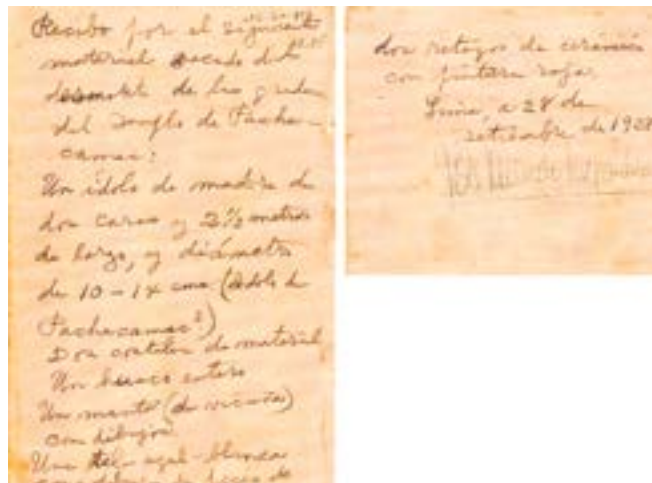 Recibo por el siguiente
material sacado del
desmonte de las gradas
del Templo de Pacha-
camac:
Un ídolo de madera de
dos caras y 2½ metros
de largo, y diámetro
de 10-14 cms (ídolo de
Pachacamac?)
Dos costales de material
Un huaco entero
Un manto (de vicuña)
con dibujos
Una tela azul-blanca
dos retazos de cerámica
con pintura roja.
Lima, a 28 de
setiembre de 1938